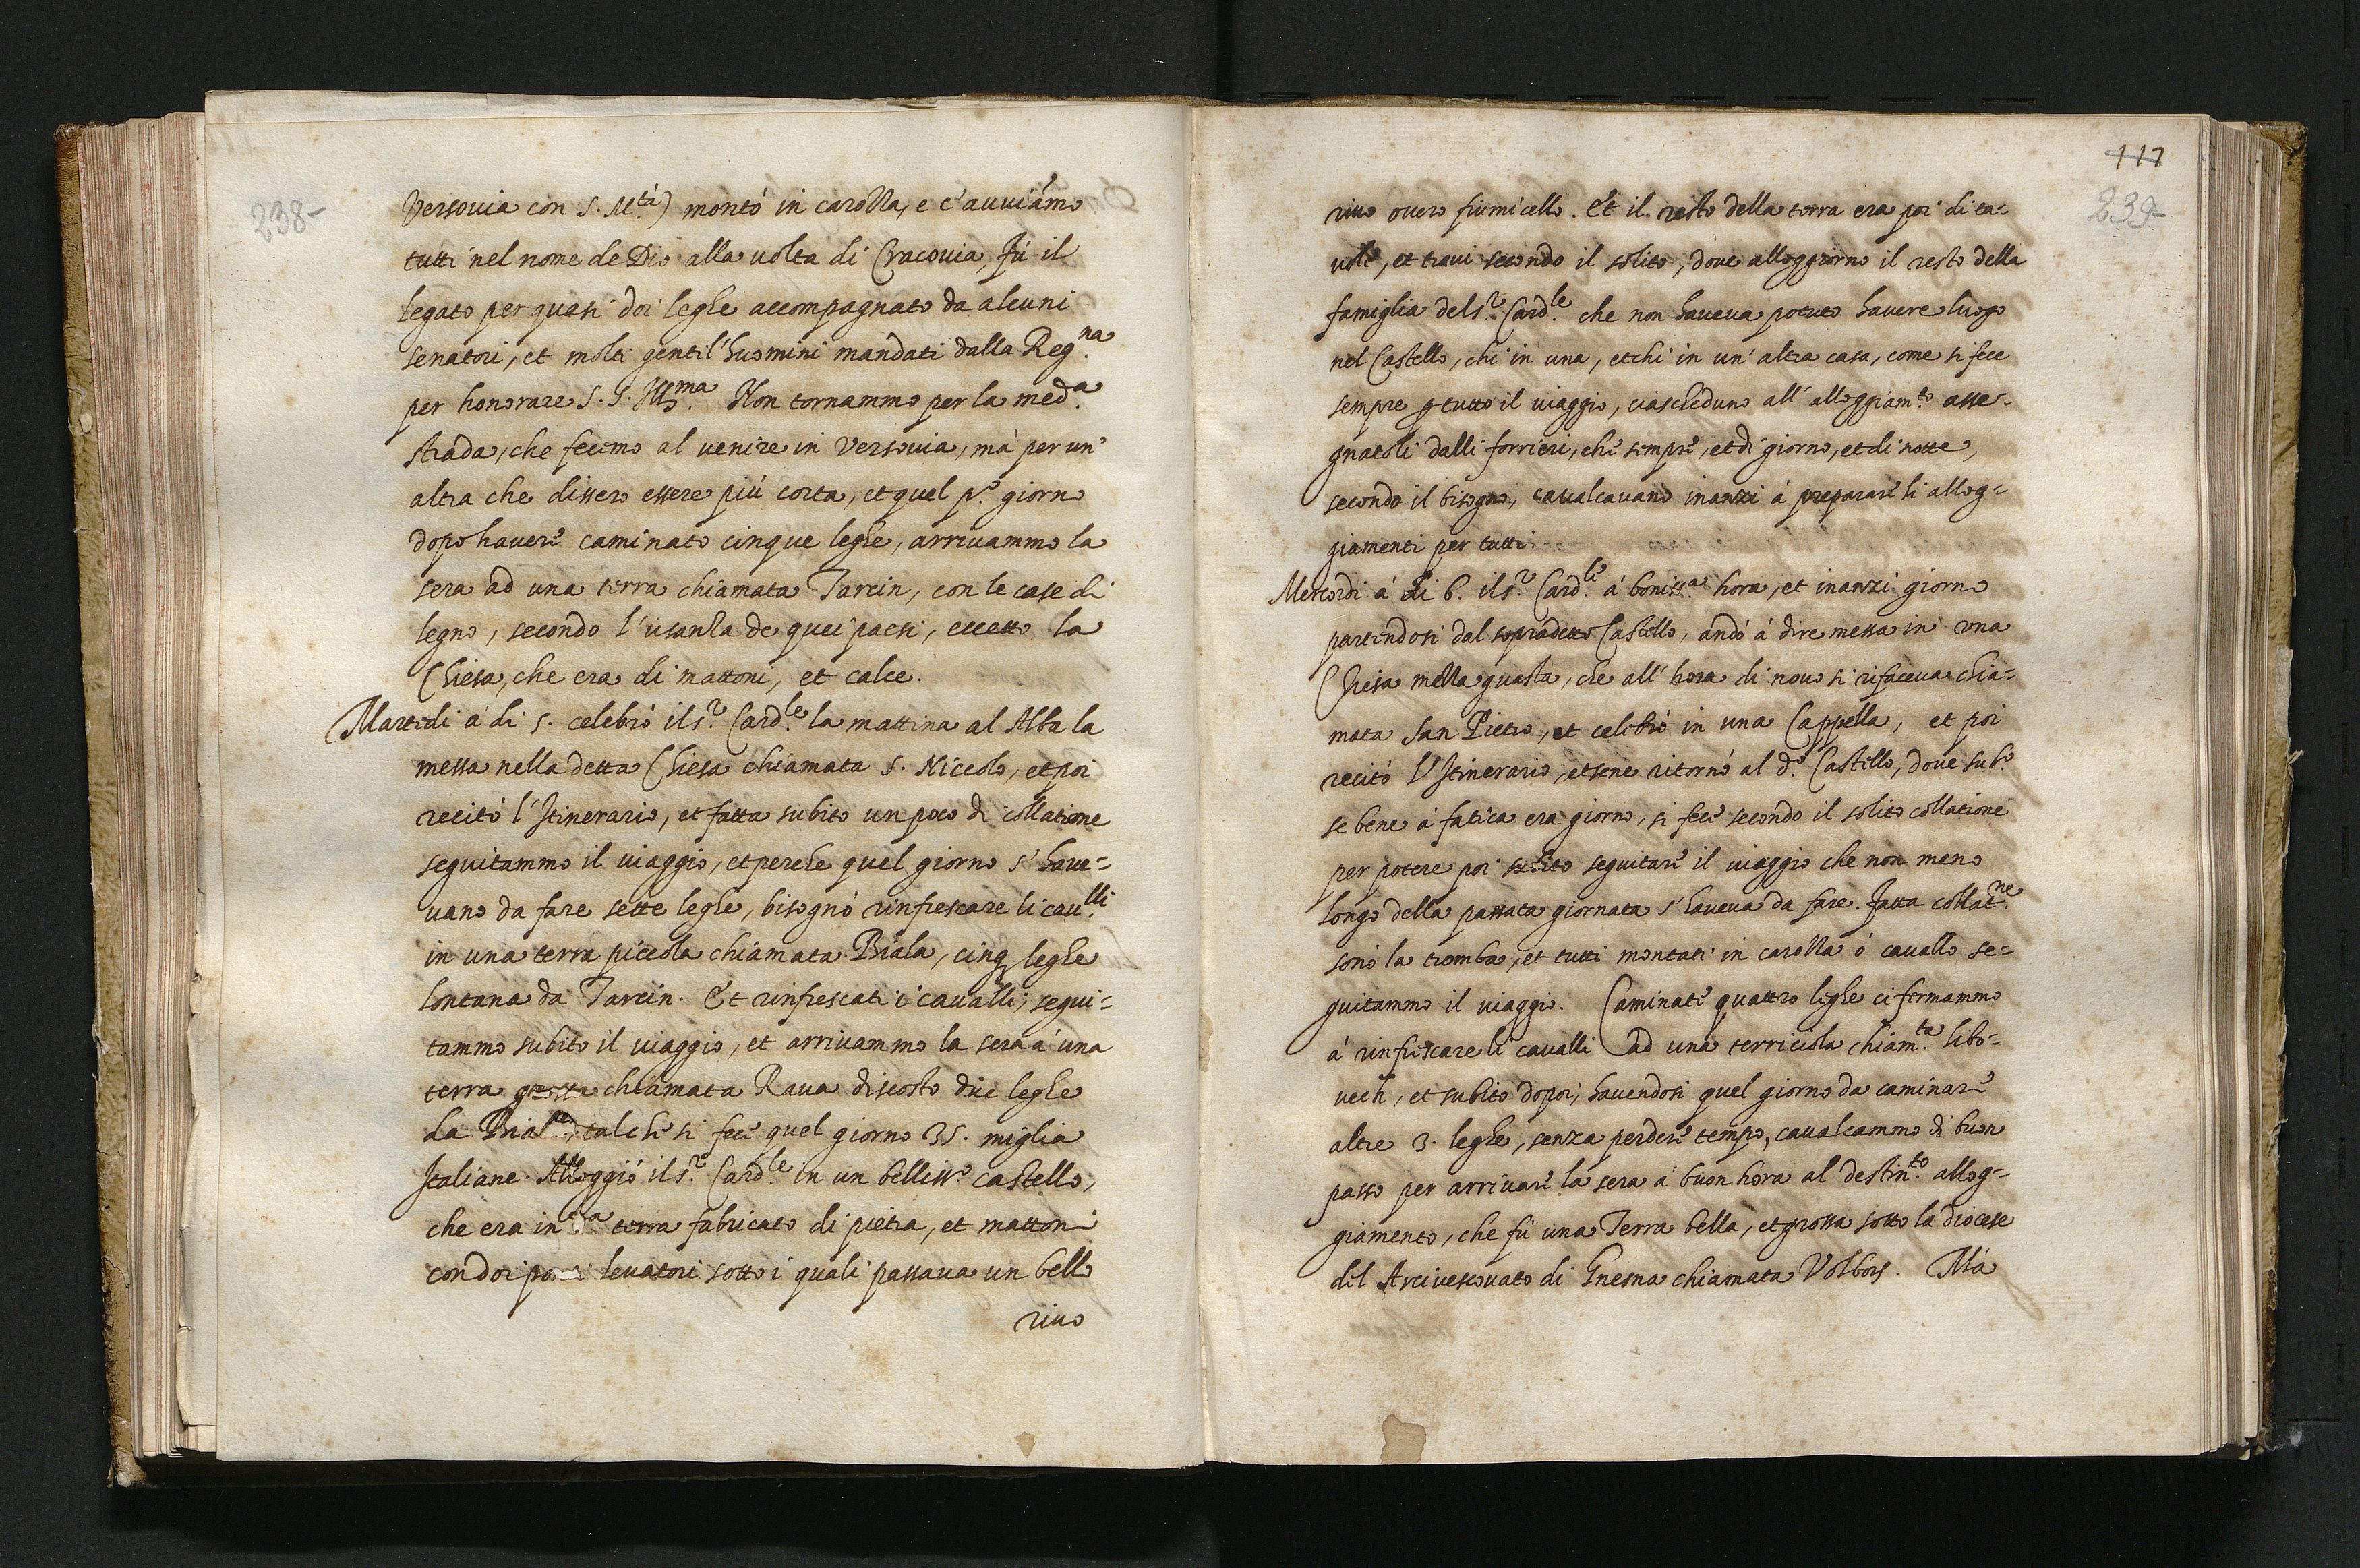 238-
Versovia con S. M.tà) montò in carozza, e c'avviamo
tutti nel nome de Dio alla volta di Cracovia, fù il
legato per quasi doi leghe accompagnato da alcuni
senatori, et molti gentil'huomini mandati dalla Reg.na
per honorare S. S. Ill.ma Non tornammo per la med.a
strada, che fecimo al venire in Versovia, mà per un'
altra che dissero essere più corta, et quel p.o giorno
dopo havere caminato cinque leghe, arrivammo la
sera ad una terra chiamata Tarcin, con le case di
legno, secondo l'usanza de quei paesi, eccetto la
Chiesa, che era di mattoni, et calce.
Martedi à di 5. celebrò il S.r Card.le la mattina al Alba la
messa nella detta Chiesa chiamata S. Niccolo, et poi
recitò l'Itinerario, et fatta subito un poco di collatione
seguitammo il viaggio, et perche quel giorno s'have=
vano da fare sette leghe, bisognò rinfrescare li cav.lli
in una terra piccola chiamata Biala, cinq leghe
lontana da Tarcin. Et rinfrescati i cavalli, segui=
tammo subito il viaggio, et arrivammo la sera à una
terra grossa chiamata Rava discosto due leghe
da Biala, talche si fece quel giorno 35. miglia
Italiane. Alloggiò il S.r Card.le in un belliss.o castello,
che era in d.a terra fabricato di pietra, et mattoni
con doi ponti levatori sotto i quali passava un bello
rivo
117
239-
rivo overo fiumicello. Et il resto della terra era poi di ta=
vole, et travi secondo il solito, dove alloggiorno il resto della
famiglia del S.r Card.le che non haveva potuto havere luogo
nel Castello, chi in una, et chi in un'altra casa, come si fece
sempre p tutto il viaggio, ciascheduno all'alloggiam.to asse=
gnatoli dalli forrieri, che sempre, et di giorno, et di notte,
secondo il bisogno, cavalcavano inanzi à preparare li allog=
giamenti per tutti.
Mercordi à di 6. il S.r Card.le à boniss.a hora, et inanzi giorno
partendosi dal sopradetto Castello, andò à dire messa in una
Chiesa mezza guasta, che all'hora di novo si rifaceva chia=
mata San Pietro, et celebrò in una Cappella, et poi
recitò l'Itinerario, et sene ritornò al d.o Castello, dove sub.o
se bene à fatica era giorno, si fece secondo il solito collatione
per potere poi subito seguitare il viaggio che non meno
longo della passata giornata s'haveva da fare. Fatta collat.ne
sonò la tromba, et tutti montati in carozza ò cavallo se=
guitammo il viaggio. Caminate quattro leghe ci fermammo
à rinfrescare li cavalli ad una terriciola chiam.ta Libo=
vech, et subito dopoi, havendosi quel giorno da caminare
altre 3. leghe, senza perdere tempo, cavalcammo di buon
passo per arrivare la sera à buon hora al destin.to allog=
giamento, che fù una Terra bella, et grossa sotto la diocese
del Arcivescovato di Gnesna chiamata Volbors. Mà